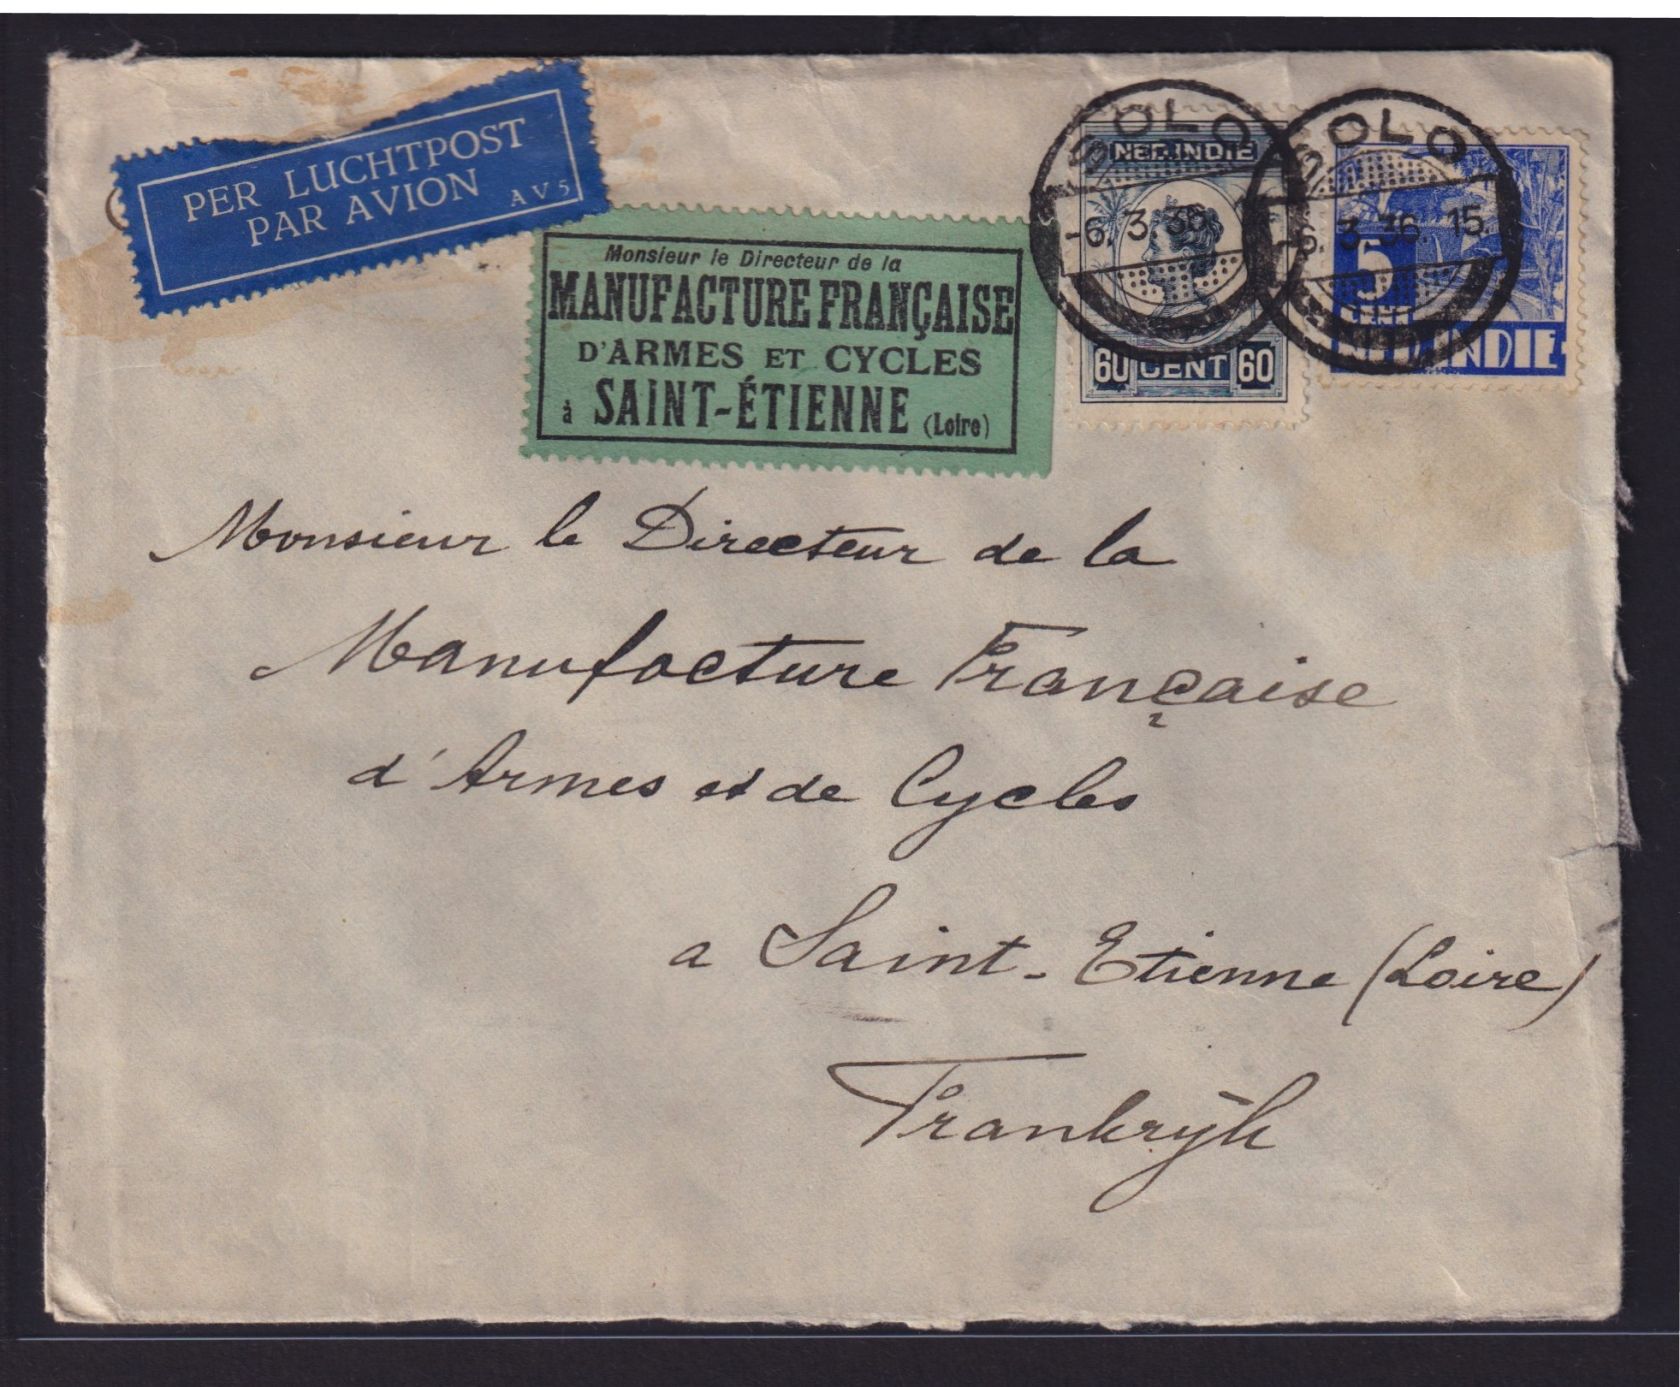 PER LUCHTPOST
PAR AVION
AV5
Monsieur le Directeur de la
MANUFACTURE FRANÇAISE
D'ARMES ET CYCLES
à SAINT-ÉTIENNE (Loire)
SOLO
-6. 3. 36
NED. INDIË
60 CENT 60
SOLO
-6. 3. 36. 15.
5
CENT
NED. INDIE
Monsieur le Directeur de la
Manufacture Française
d'Armes et de Cycles
a Saint-Etienne (Loire)
Frankrijk